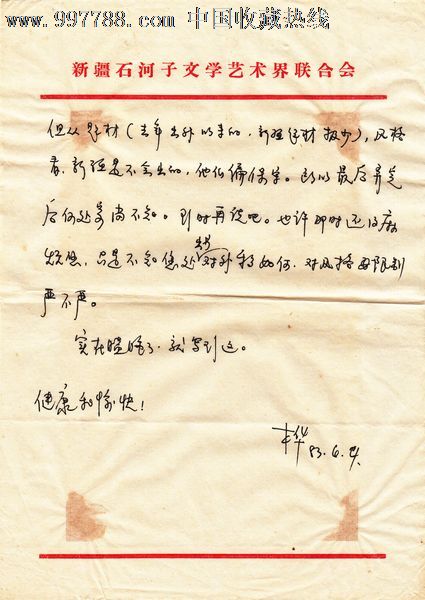 www.997788.com 中国收藏热线
新疆石河子文学艺术界联合会
但从题材（去年出外以来的，新疆题材极少），风格
看，新疆是不会出的，他们偏保守。所以最后弄完
后何处寄尚不知。到时再说吧。也许那时还得麻
烦您，只是不知您处对外稿如何，对风格的限制
严不严。
实在瞌睡了，就写到这。
健康和愉快！
83.6.4.